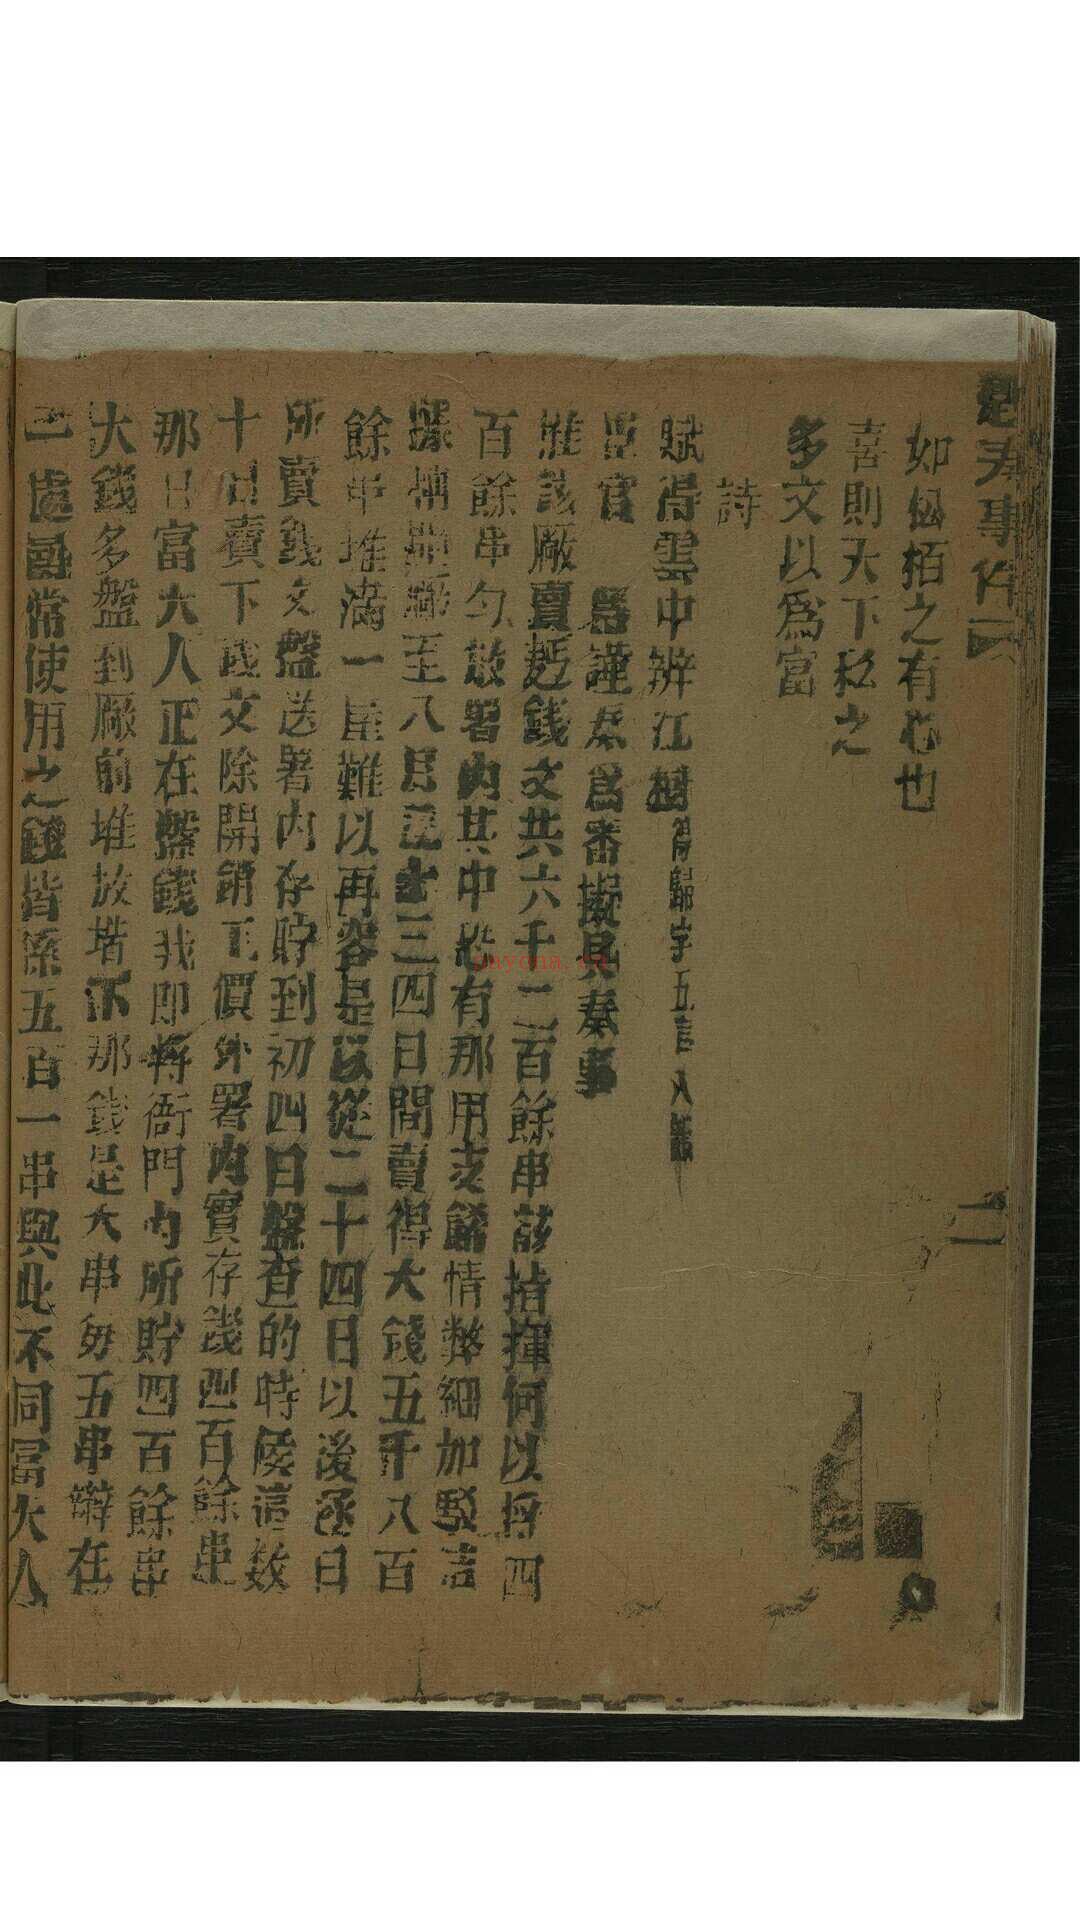 題奏事件 二
如松栢之有心也
喜則天下私之
多文以爲富
詩
賦得雲中辨江樹得歸字五言八韻
臣官 署謹奏爲審擬具奏事
維該廠賣麪錢文共六千二百餘串該指揮何以將四
百餘串勻散署內其中恐有那用支餙情弊細加駁詰
據 供至八月二十三四日間賣得大錢五千八百
餘串堆滿一屋難以再容是以從二十四日以後逐日
所賣錢文盤送署內存貯到初四日盤查的時候這数
十日賣下錢文除開銷工價外署內實存錢四百餘串
那日富大人正在盤錢我即將衙門內所貯四百餘串
大錢多盤到廠前堆放堦下那錢是大串每五串辮在
一處 常使用之錢皆係五百一串與此不同富大人